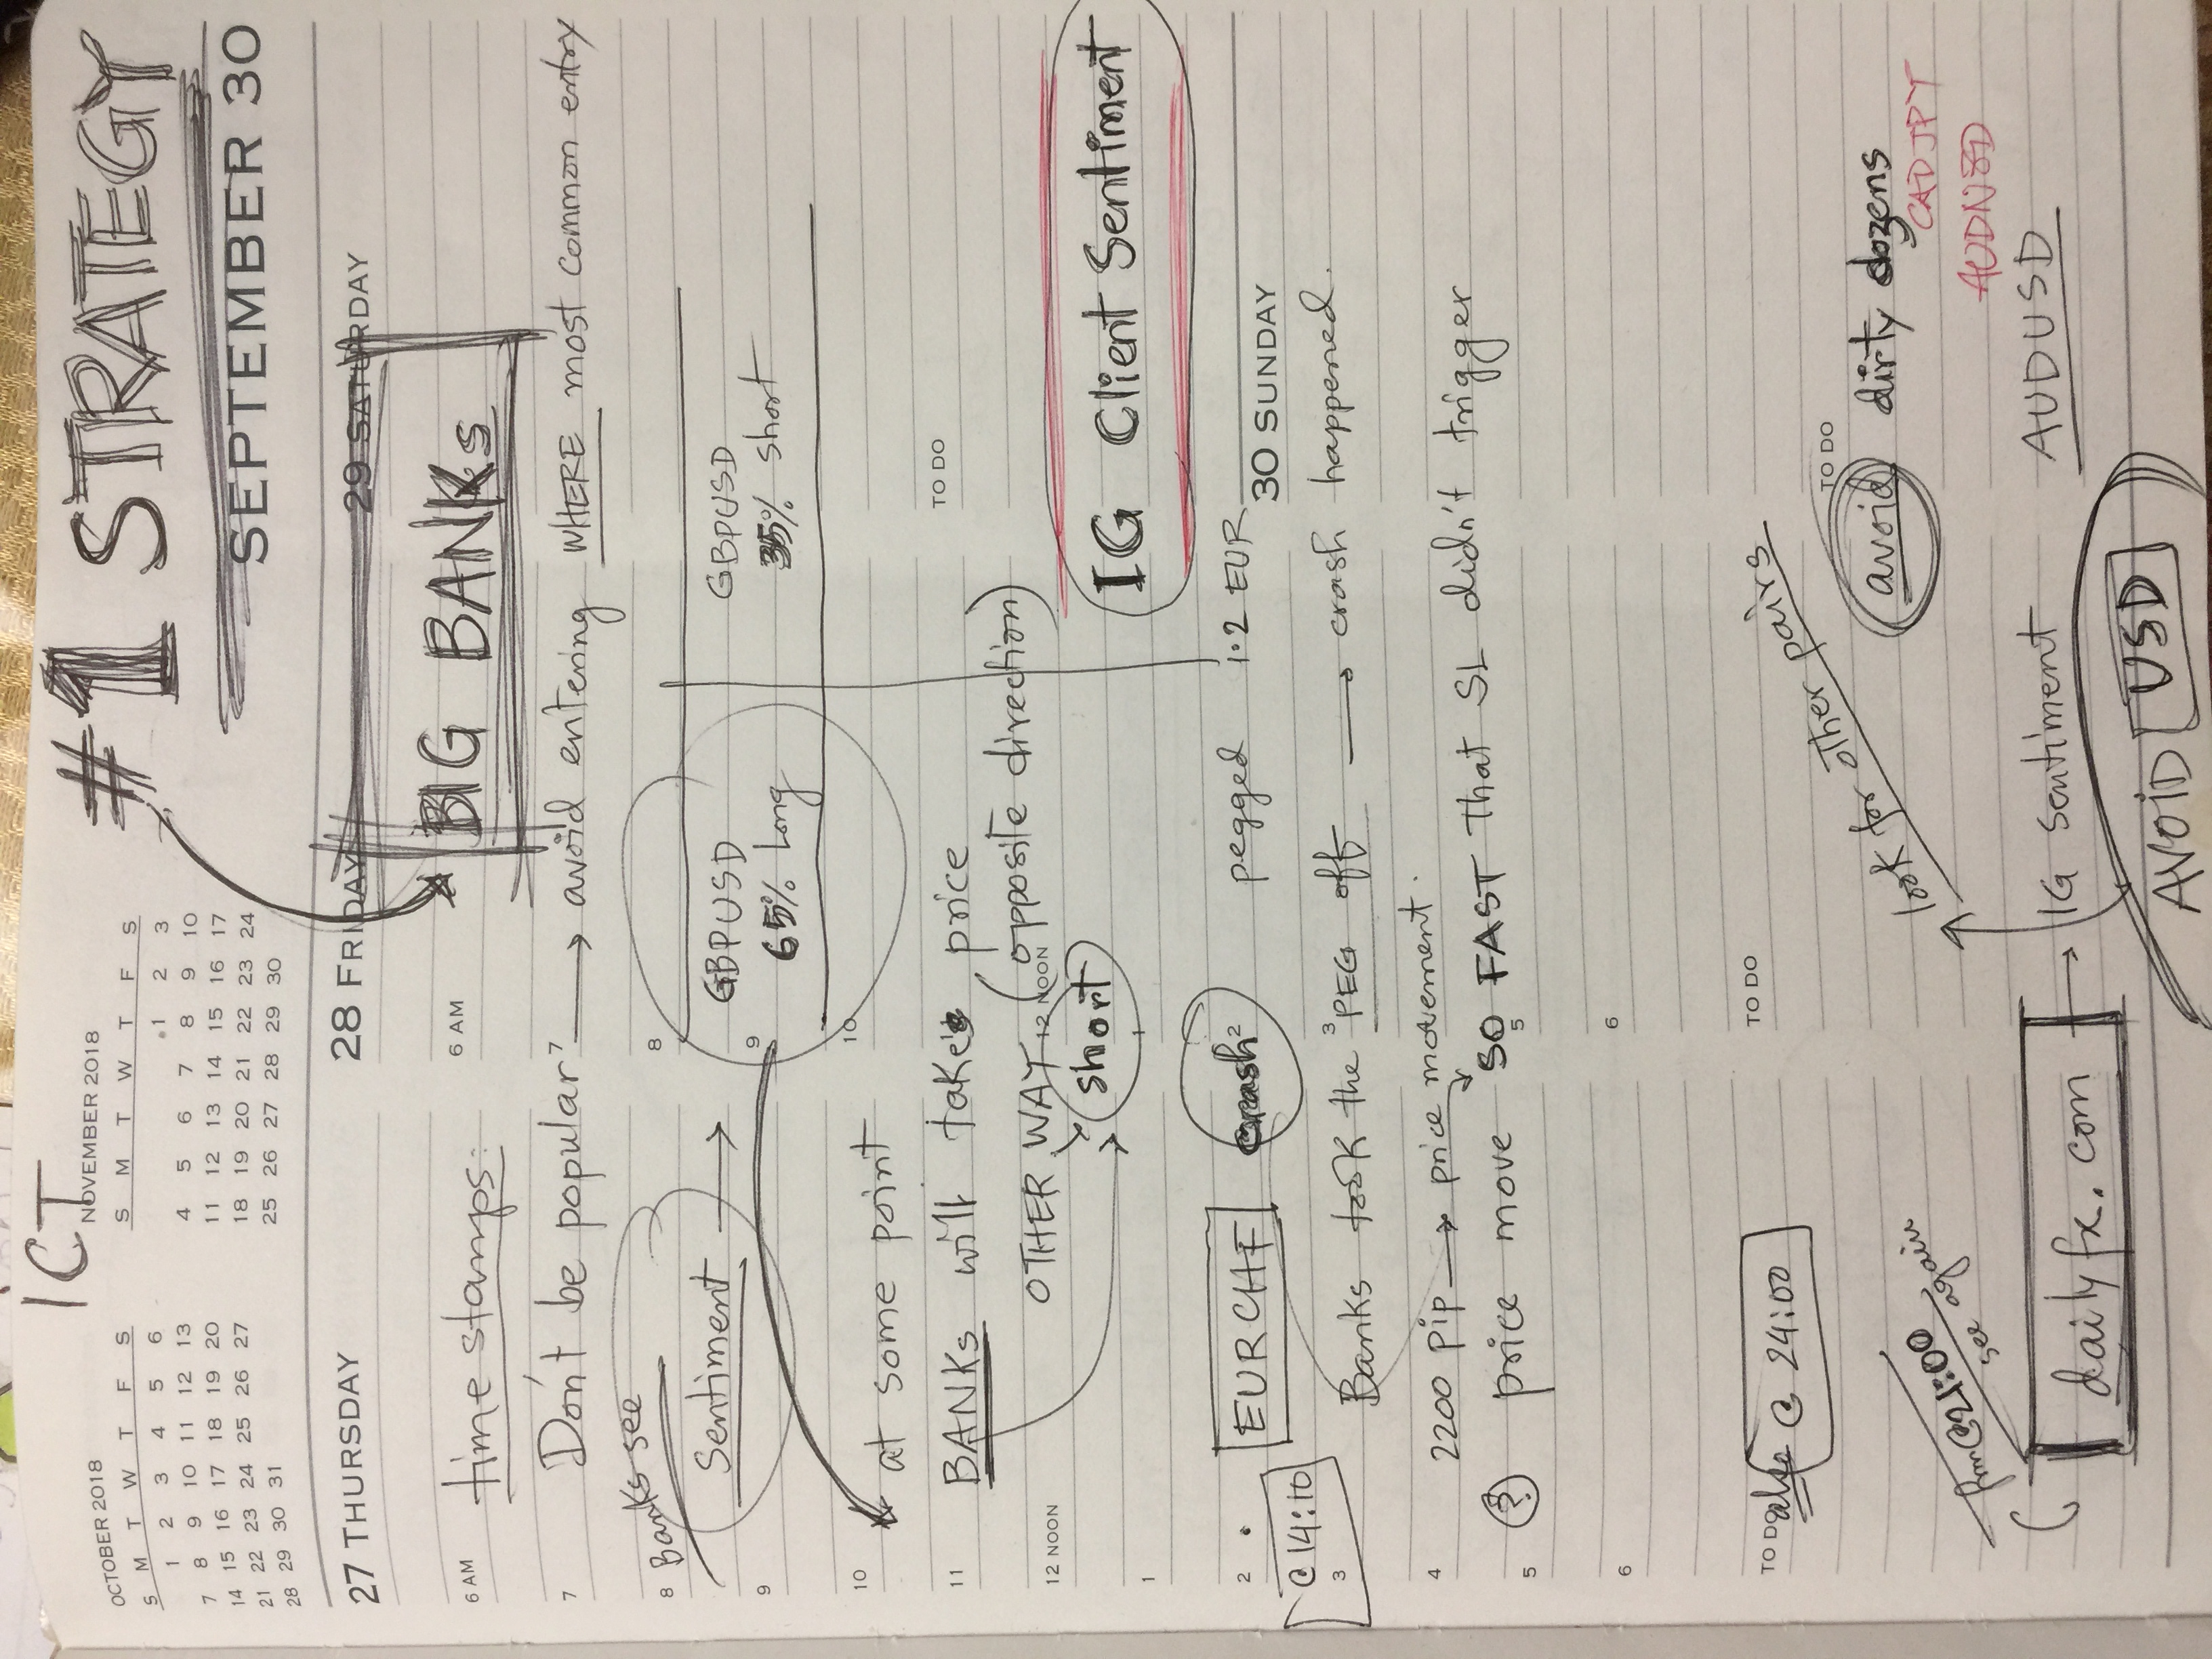 ICT
#1 STRATEGY
OCTOBER 2018
S M T W T F S
1 2 3 4 5 6
7 8 9 10 11 12 13
14 15 16 17 18 19 20
21 22 23 24 25 26 27
28 29 30 31
NOVEMBER 2018
S M T W T F S
1 2 3
4 5 6 7 8 9 10
11 12 13 14 15 16 17
18 19 20 21 22 23 24
25 26 27 28 29 30
SEPTEMBER 30
27 THURSDAY 28 FRIDAY 29 SATURDAY
BIG BANKs
6 AM time stamps: 6 AM
7 Don't be popular 7 → avoid entering WHERE most common entry
8 Banks see 8
Sentiment → GBPUSD GBPUSD
9 9 65% Long 35% short
10 10
at some point
TO DO
11 BANKs will take price
OTHER WAY (opposite direction)
12 NOON 12 NOON
short
IG Client Sentiment
1 1
2 EURCHF crash 2 pegged 1.2 EUR
30 SUNDAY
@ 14:10
3 Banks took the 3 PEG off → crash happened.
4 2200 pip → price movement.
? price move SO FAST that SL didn't trigger
5 5
6 6
TO DO TO DO
also @ 24:00
look for other pairs
TO DO
avoid dirty dozens
CADJPY
AUDNZD
AUDUSD
frm @21:00
see again
dailyfx.com → IG sentiment
AVOID USD